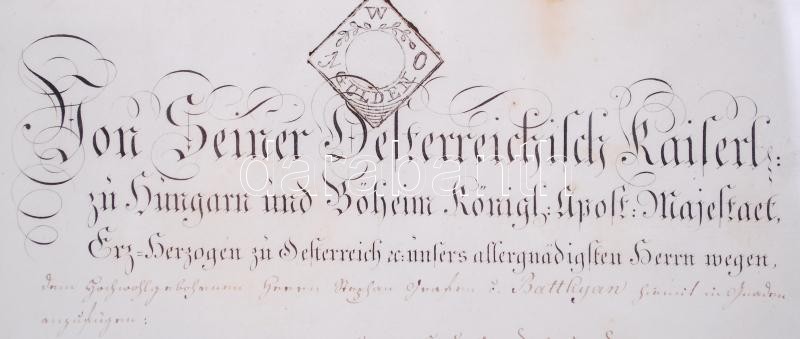 ZWO
GULDEN
Von Seiner Oesterreichisch Kaiserl:
zu Hungarn und Böheim Königl: Apost: Majestaet,
Erz=Herzogen zu Oesterreich &c: unsers allergnädigsten Herrn wegen,
dem Hochwohlgebohrnen Herrn Stephan Grafen v. Batthyan hiemit in Gnaden
anzufügen:
darabanth